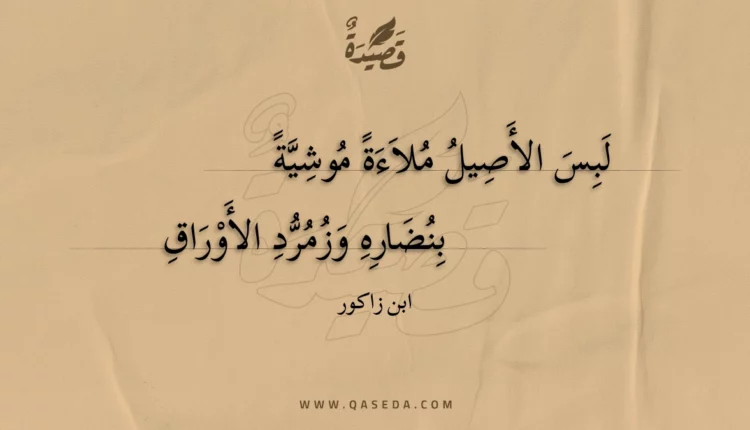 قَصِيْدَةٌ
لَبِسَ الأَصِيلُ مُلاَءَةً مُوشِيَّةً
بِنُضَارِهِ وَزُمُرُّدِ الأَوْرَاقِ
ابن زاكور
WWW.QASEDA.COM